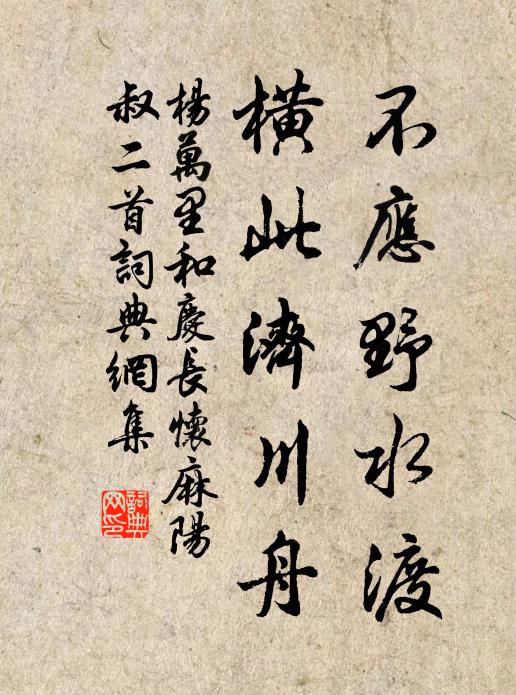 不應野水渡
橫此濟川舟
楊萬里和慶長懷麻陽
叔二首詞典網集
詞典網印